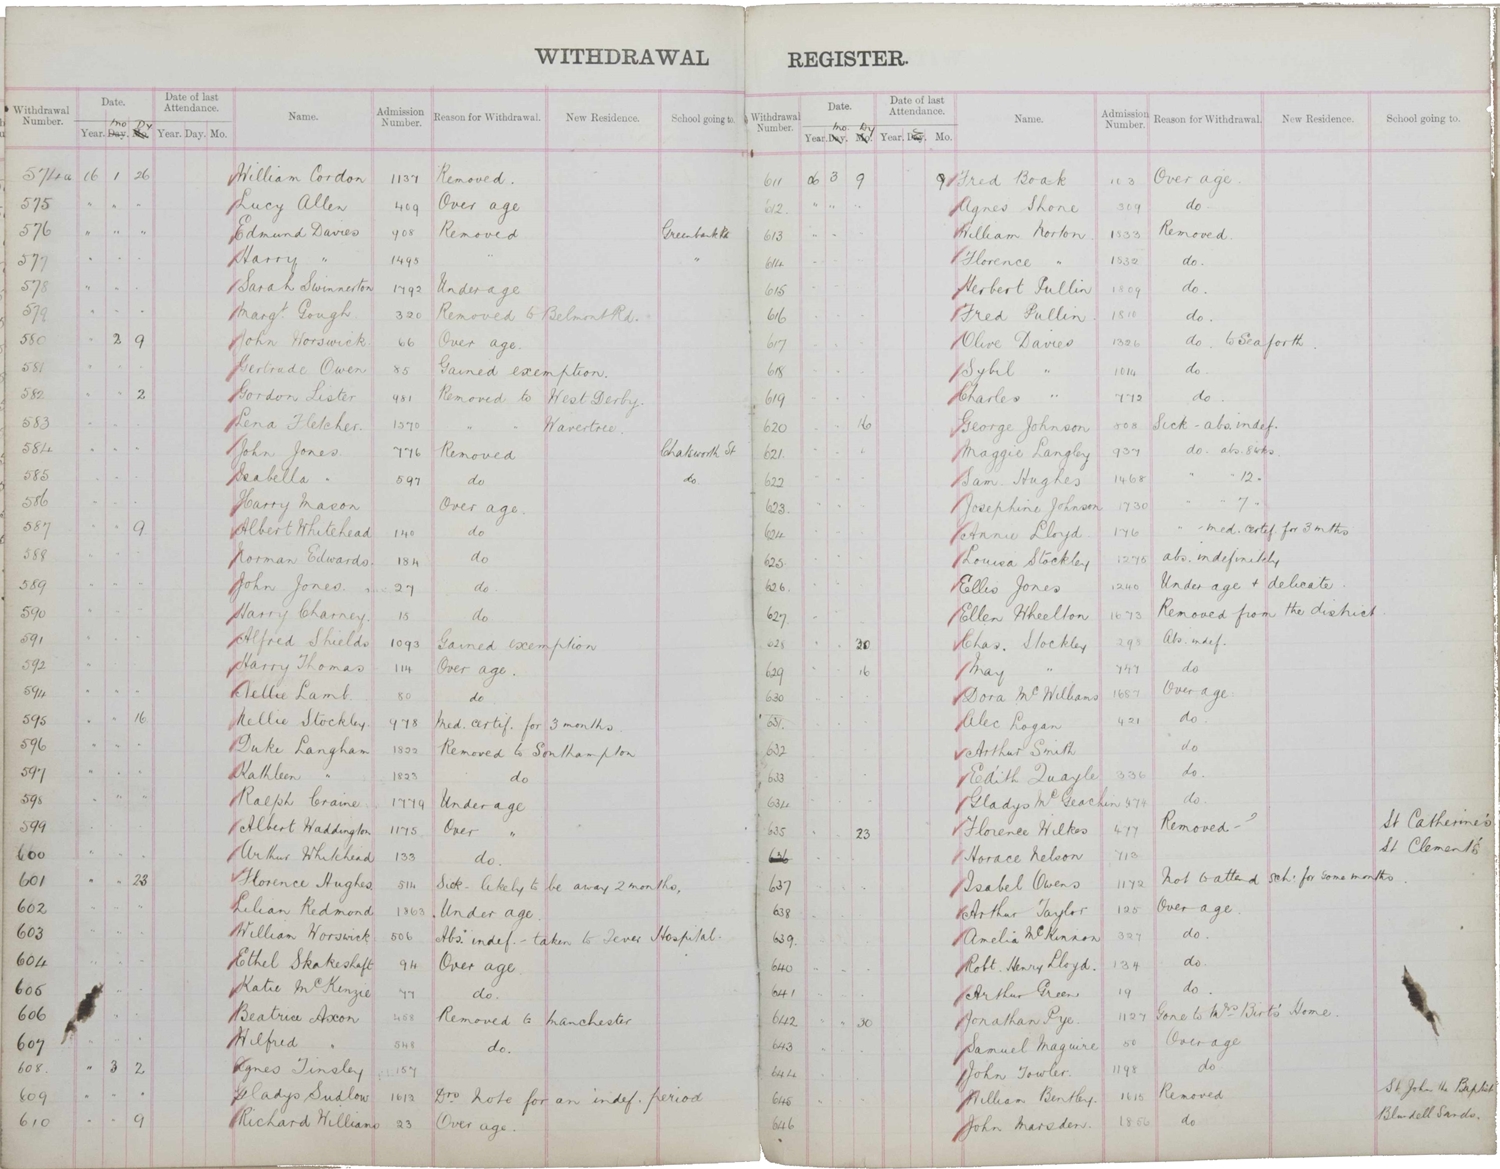 WITHDRAWAL REGISTER.
Withdrawal Number. Date. Year. Day. Mo. mo Dy Date of last Attendance. Year. Day. Mo. Name. Admission Number. Reason for Withdrawal. New Residence. School going to.
574a 06 1 26 William Cordon 1137 Removed.
575 " " " Lucy Allen 409 Over age
576 " " " Edmund Davies 908 Removed Greenbank Rd
577 " " " Harry " 1495 " "
578 " " " Sarah Swinnerton 1792 Under age
579 " " " Margt. Gough 320 Removed to Belmont Rd.
580 " 2 9 John Worswick 66 Over age.
581 " " " Gertrude Owen 85 Gained exemption.
582 " " 2 Gordon Lister 981 Removed to West Derby.
583 " " " Lena Fletcher. 1570 " " Wavertree.
584 " " " John Jones 776 Removed Chatsworth St
585 " " " Isabella " 597 do do
586 " " " Harry Mason Over age.
587 " " 9 Albert Whitehead 140 do
588 " " " Norman Edwards 184 do
589 " " " John Jones. 27 do
590 " " " Harry Charney. 15 do
591 " " " Alfred Shields 1093 Gained exemption
592 " " " Harry Thomas 114 Over age.
594 " " " Nellie Lamb 80 do
595 " " 16 Nellie Stockley. 978 Med. certif. for 3 months
596 " " " Duke Langham 1822 Removed to Southampton
597 " " " Kathleen " 1823 do
598 " " " Ralph Craine 1779 Under age
599 " " " Albert Waddington 1175 Over "
600 " " " Arthur Whitehead 133 do.
601 " " 23 Florence Hughes 514 Sick - likely to be away 2 months,
602 " " " Lilian Redmond 1863 Under age
603 " " " William Worswick 506 Abs. indef. - taken to Fever Hospital.
604 " " " Ethel Skakeshaft 94 Over age
605 " " " Katie McKenzie 77 do.
606 " " " Beatrice Axon 458 Removed to Manchester
607 " " " Wilfred " 548 do.
608. " 3 2 Agnes Tinsley 157
609 " " " Gladys Sudlow 1613 Dro note for an indef. period
610 " " 9 Richard Williams 23 Over age.
Withdrawal Number. Date. Year. Day. Mo. mo. Dy Date of last Attendance. Year. Day. Mo. Name. Admission Number. Reason for Withdrawal. New Residence. School going to.
611 06 3 9 9 Fred Boak 103 Over age.
612. " " " Agnes Shone 309 do
613 " " " William Norton 1533 Removed.
614 " " " Florence " 1532 do.
615 " " " Herbert Pullin 1809 do.
616 " " " Fred Pullin 1810 do.
617 " " " Olive Davies 1326 do. to Seaforth.
618 " " " Sybil " 1014 do.
619 " " " Charles " 772 do.
620 " " 16 George Johnson 808 Sick - abs. indef.
621 " " " Maggie Langley 937 do. abs. 8 wks.
622 " " " Sam. Hughes 1468 " " 12 "
623. " " " Josephine Johnson 1730 " " 7 "
624 " " " Annie Lloyd 176 " med. certif. for 3 mths
625 " " " Louisa Stockley 1275 abs. indefinitely
626. " " " Ellis Jones 1240 Under age + delicate.
627. " " " Ellen Wheelton 1673 Removed from the district
628 " " 20 Chas. Stockley 293 Abs. indef.
629 " " 16 May " 747 do
630 " " " Dora McWilliams 1657 Over age.
631. " " " Alec Logan 421 do.
632 " " " Arthur Smith do
633 " " " Edith Quayle 336 do.
634 " " " Gladys McGeachin 474 do.
635 " " 23 Florence Wilkes 477 Removed - ? St Catherine's
636 " " " Horace Nelson 713 St Clement's
637 " " " Isabel Owens 1172 Not to attend sch. for some months.
638 " " " Arthur Taylor 125 Over age.
639. " " " Amelia McKinnon 327 do.
640 " " " Robt. Henry Lloyd. 134 do.
641 " " " Arthur Green 19 do.
642 " " 30 Jonathan Pye. 1127 Gone to Mrs Birt's Home.
643 " " " Samuel Maguire 50 Over age
644 " " " John Towler. 1198 do
645 " " " William Bentley. 1615 Removed St John the Baptist
646 " " " John Marsden. 1856 do Blundell Sands.